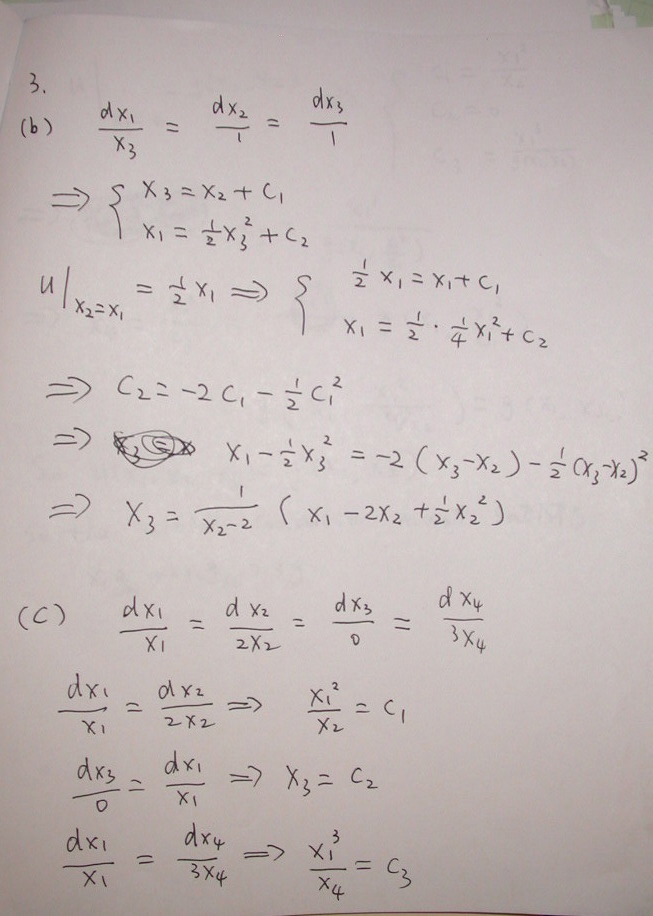 3.
(b) dx₁/x₃ = dx₂/1 = dx₃/1
⇒ { x₃ = x₂ + C₁
x₁ = ½x₃² + C₂
u|ₓ₂₌ₓ₁ = ½x₁ ⇒ { ½x₁ = x₁ + C₁
x₁ = ½ · ¼x₁² + C₂
⇒ C₂ = -2C₁ - ½C₁²
⇒ x₁ - ½x₃² = -2(x₃-x₂) - ½(x₃-x₂)²
⇒ x₃ = 1/(x₂-2) (x₁ - 2x₂ + ½x₂²)
(C) dx₁/x₁ = dx₂/2x₂ = dx₃/0 = dx₄/3x₄
dx₁/x₁ = dx₂/2x₂ ⇒ x₁²/x₂ = C₁
dx₃/0 = dx₁/x₁ ⇒ x₃ = C₂
dx₁/x₁ = dx₄/3x₄ ⇒ x₁³/x₄ = C₃